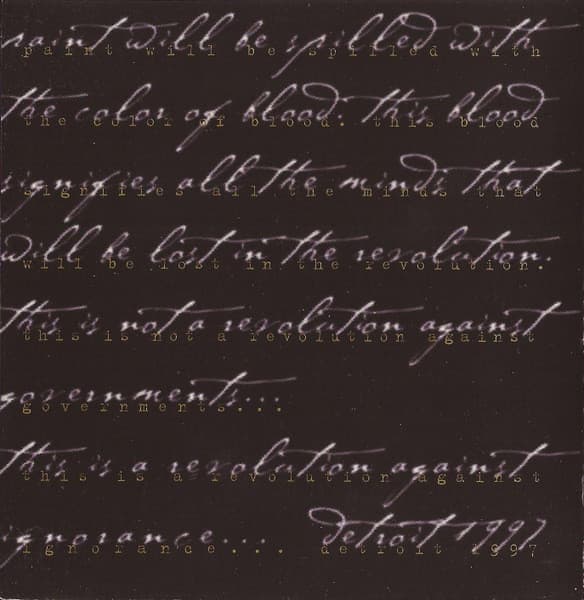 paint will be spilled with
paint will be spilled with
the color of blood. this blood
the color of blood. this blood
signifies all the minds that
signifies all the minds that
will be lost in the revolution.
will be lost in the revolution.
this is not a revolution against
this is not a revolution against
governments...
governments...
this is a revolution against
this is a revolution against
ignorance.... detroit 1997
ignorance.... detroit 1997